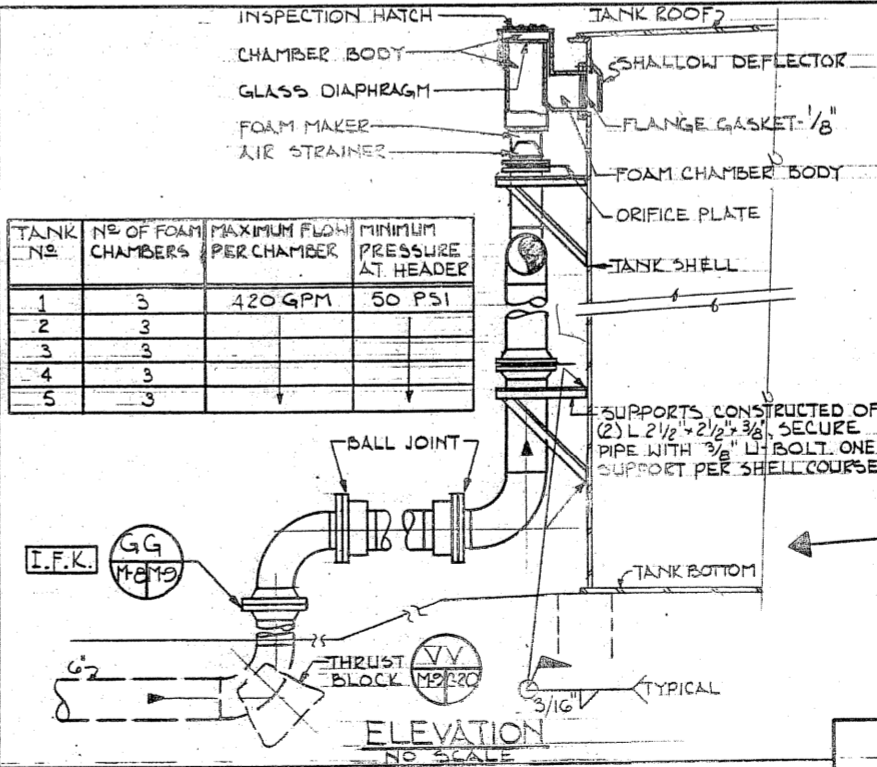 INSPECTION HATCH
CHAMBER BODY
GLASS DIAPHRAGM
FOAM MAKER
AIR STRAINER
TANK ROOF
SHALLOW DEFLECTOR
FLANGE GASKET-1/8"
FOAM CHAMBER BODY
ORIFICE PLATE
TANK SHELL
TANK Nº
Nº OF FOAM CHAMBERS
MAXIMUM FLOW PER CHAMBER
MINIMUM PRESSURE AT HEADER
1 3 420 GPM 50 PSI
2 3
3 3
4 3
5 3
SUPPORTS CONSTRUCTED OF
(2) L 2 1/2" x 2 1/2" x 3/8", SECURE
PIPE WITH 3/8" U-BOLT. ONE
SUPPORT PER SHELL COURSE
BALL JOINT
I.F.K.
GG
M-8 M-9
TANK BOTTOM
6"
THRUST
BLOCK
VV
M-9
3/16"
TYPICAL
ELEVATION
NO SCALE